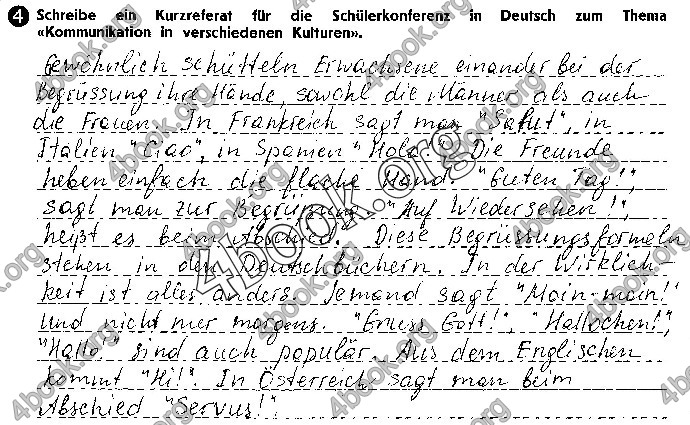 4 Schreibe ein Kurzreferat für die Schülerkonferenz in Deutsch zum Thema
«Kommunikation in verschiedenen Kulturen».
Gewöhnlich schütteln Erwachsene einander bei der
Begrüssung ihre Hände, sowohl die Männer als auch
die Frauen. In Frankreich sagt man "Salut", in
Italien "Ciao", in Spanien "Hola". Die Freunde
heben einfach die flache Hand. "Guten Tag!",
sagt man zur Begrüssung. "Auf Wiedersehen!",
heißt es beim Abschied. Diese Begrüssungsformeln
stehen in den Deutschbüchern. In der Wirklich-
keit ist alles anders. Jemand sagt "Moin-moin!"
und nicht nur morgens. "Gruss Gott!", "Hallöchen!",
"Hallo" sind auch populär. Aus dem Englischen
kommt "Hi!". In Österreich sagt man beim
Abschied "Servus!".
4book.org